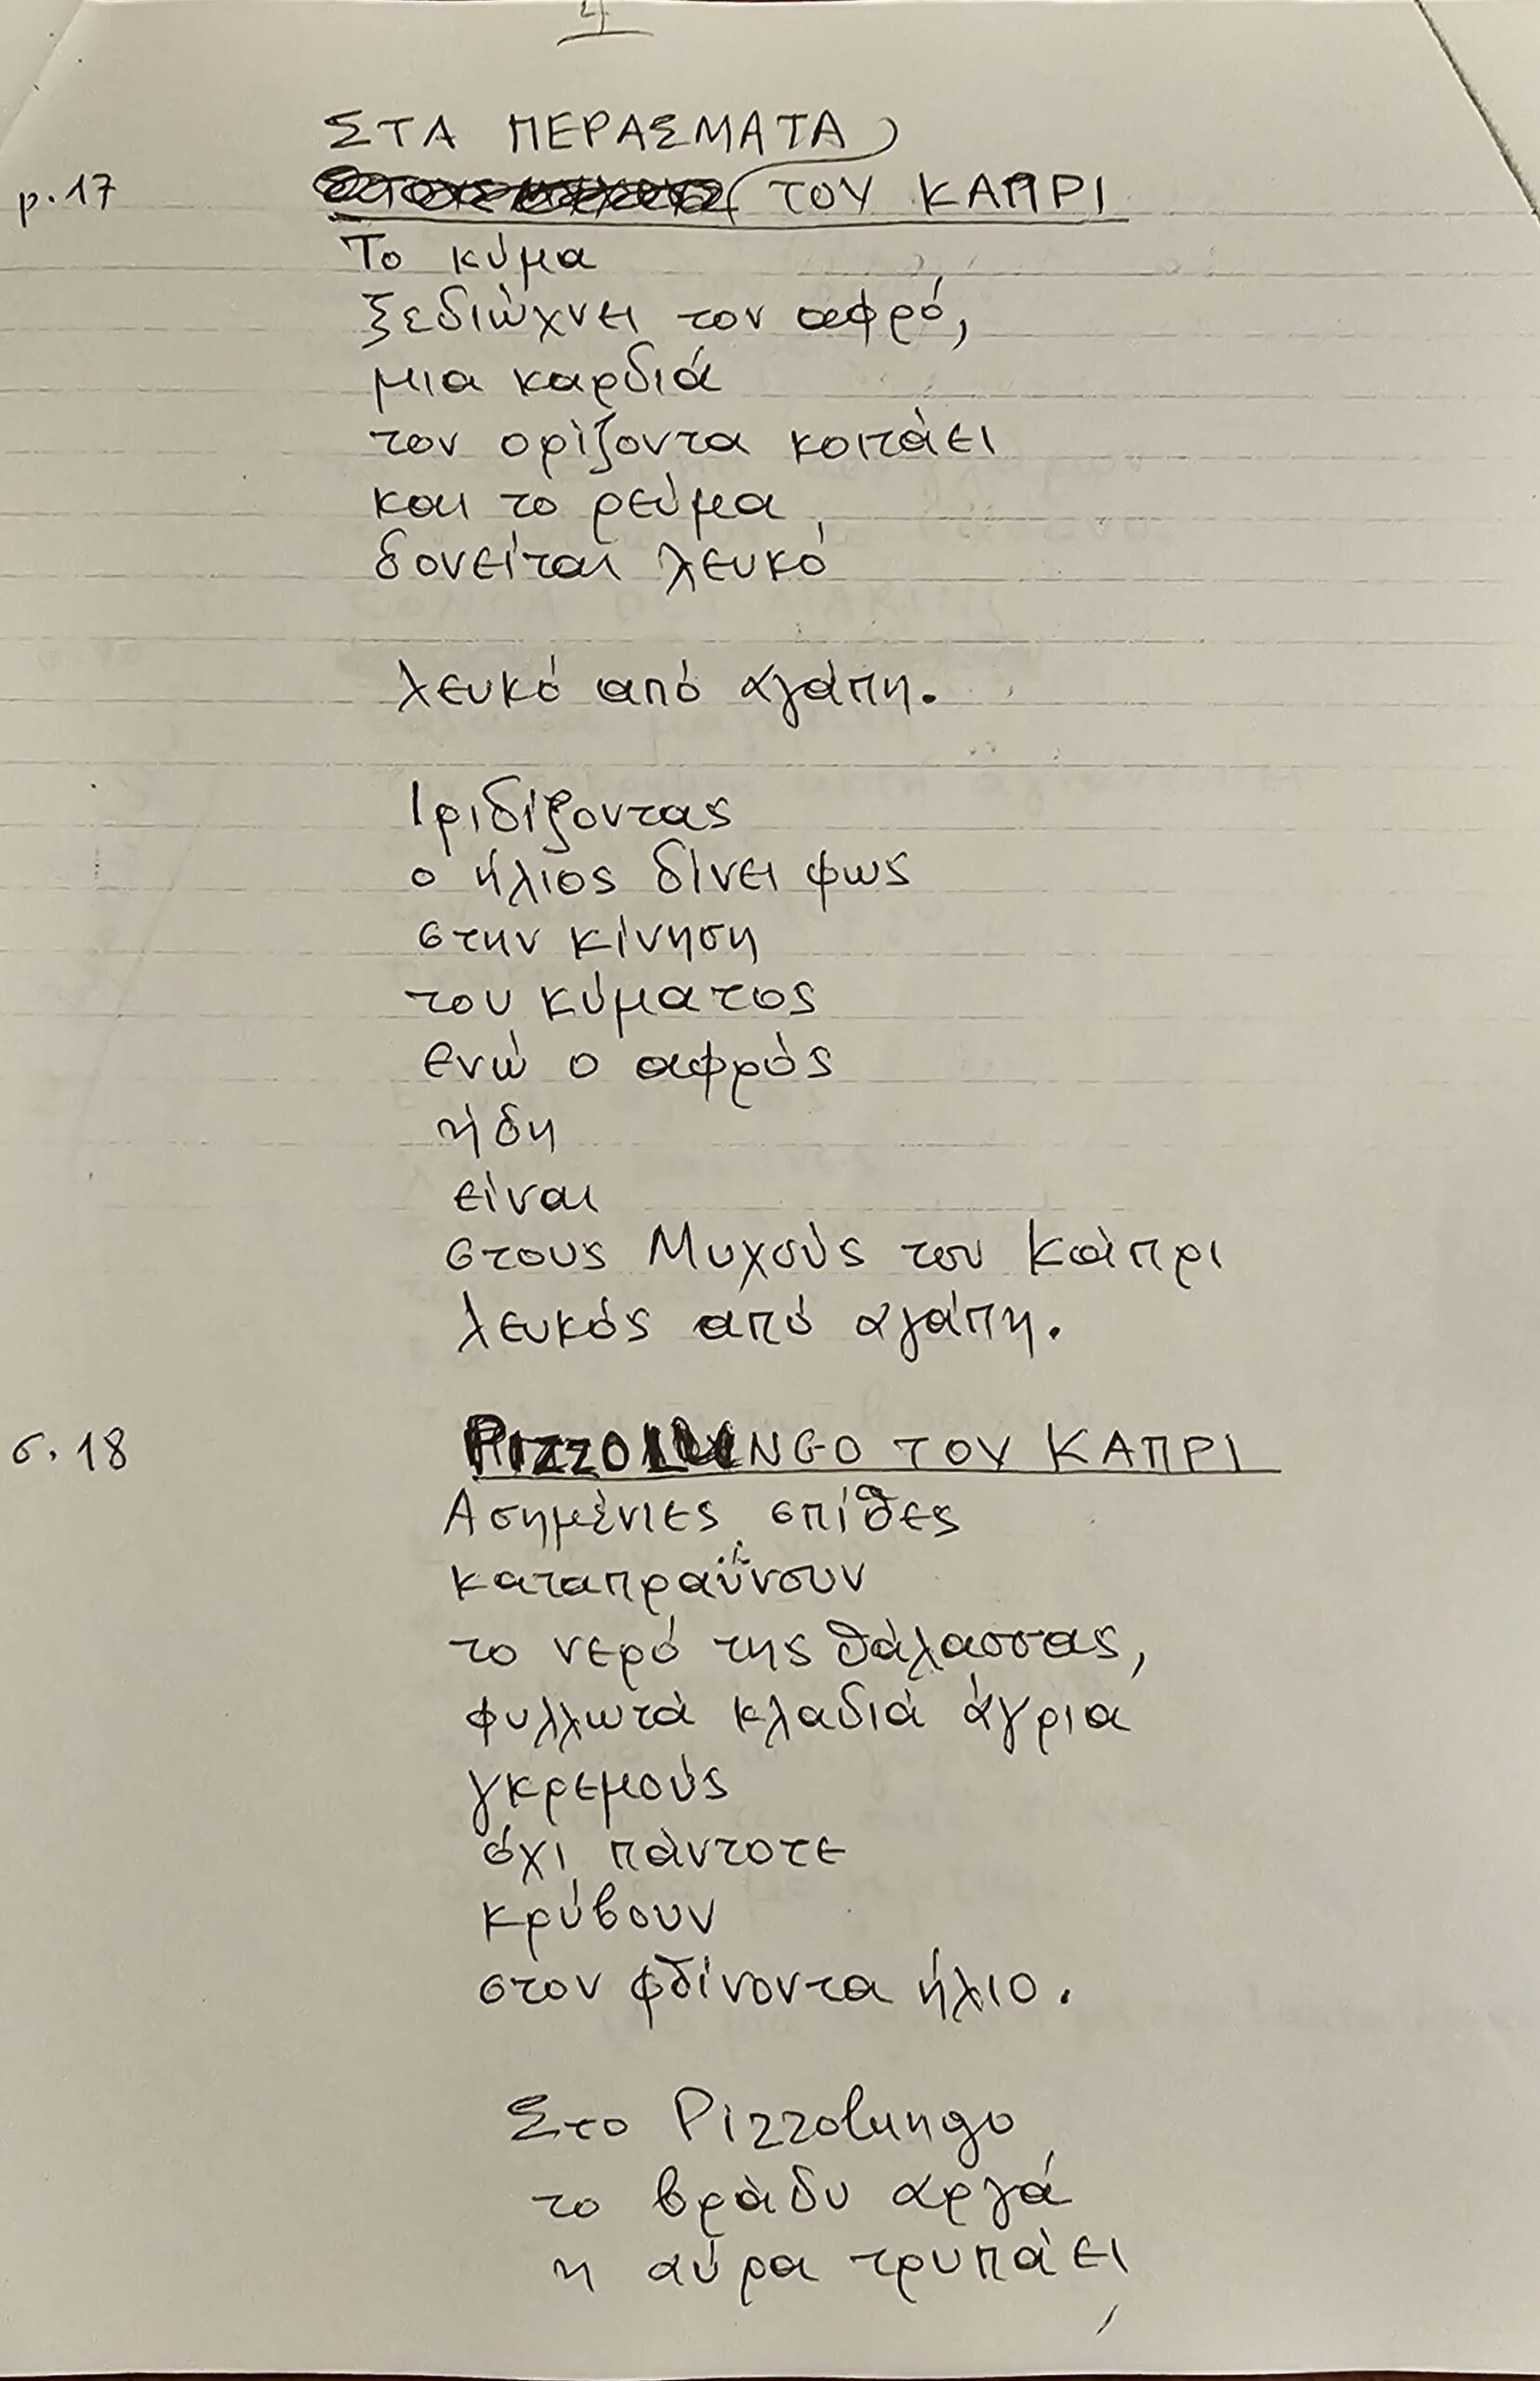 4
ΣΤΑ ΠΕΡΑΣΜΑΤΑ
p. 17 ΤΟΥ ΚΑΠΡΙ
Το κύμα
ξεδιώχνει τον αφρό,
μια καρδιά
τον ορίζοντα κοιτάει
και το ρεύμα
δονείται λευκό
λευκό από αγάπη.
Ιριδίζοντας
ο ήλιος δίνει φως
στην κίνηση
του κύματος
ενώ ο αφρός
ήδη
είναι
στους Μυχούς του Κάπρι
λευκός από αγάπη.
σ. 18 PIZZOLUNGO ΤΟΥ ΚΑΠΡΙ
Ασημένιες σπίθες
καταπραΰνουν
το νερό της θάλασσας,
φυλλωτά κλαδιά άγρια
γκρεμούς
όχι πάντοτε
κρύβουν
στον φθίνοντα ήλιο.
Στο Pizzolungo
το βράδυ αργά
η αύρα τρυπάει